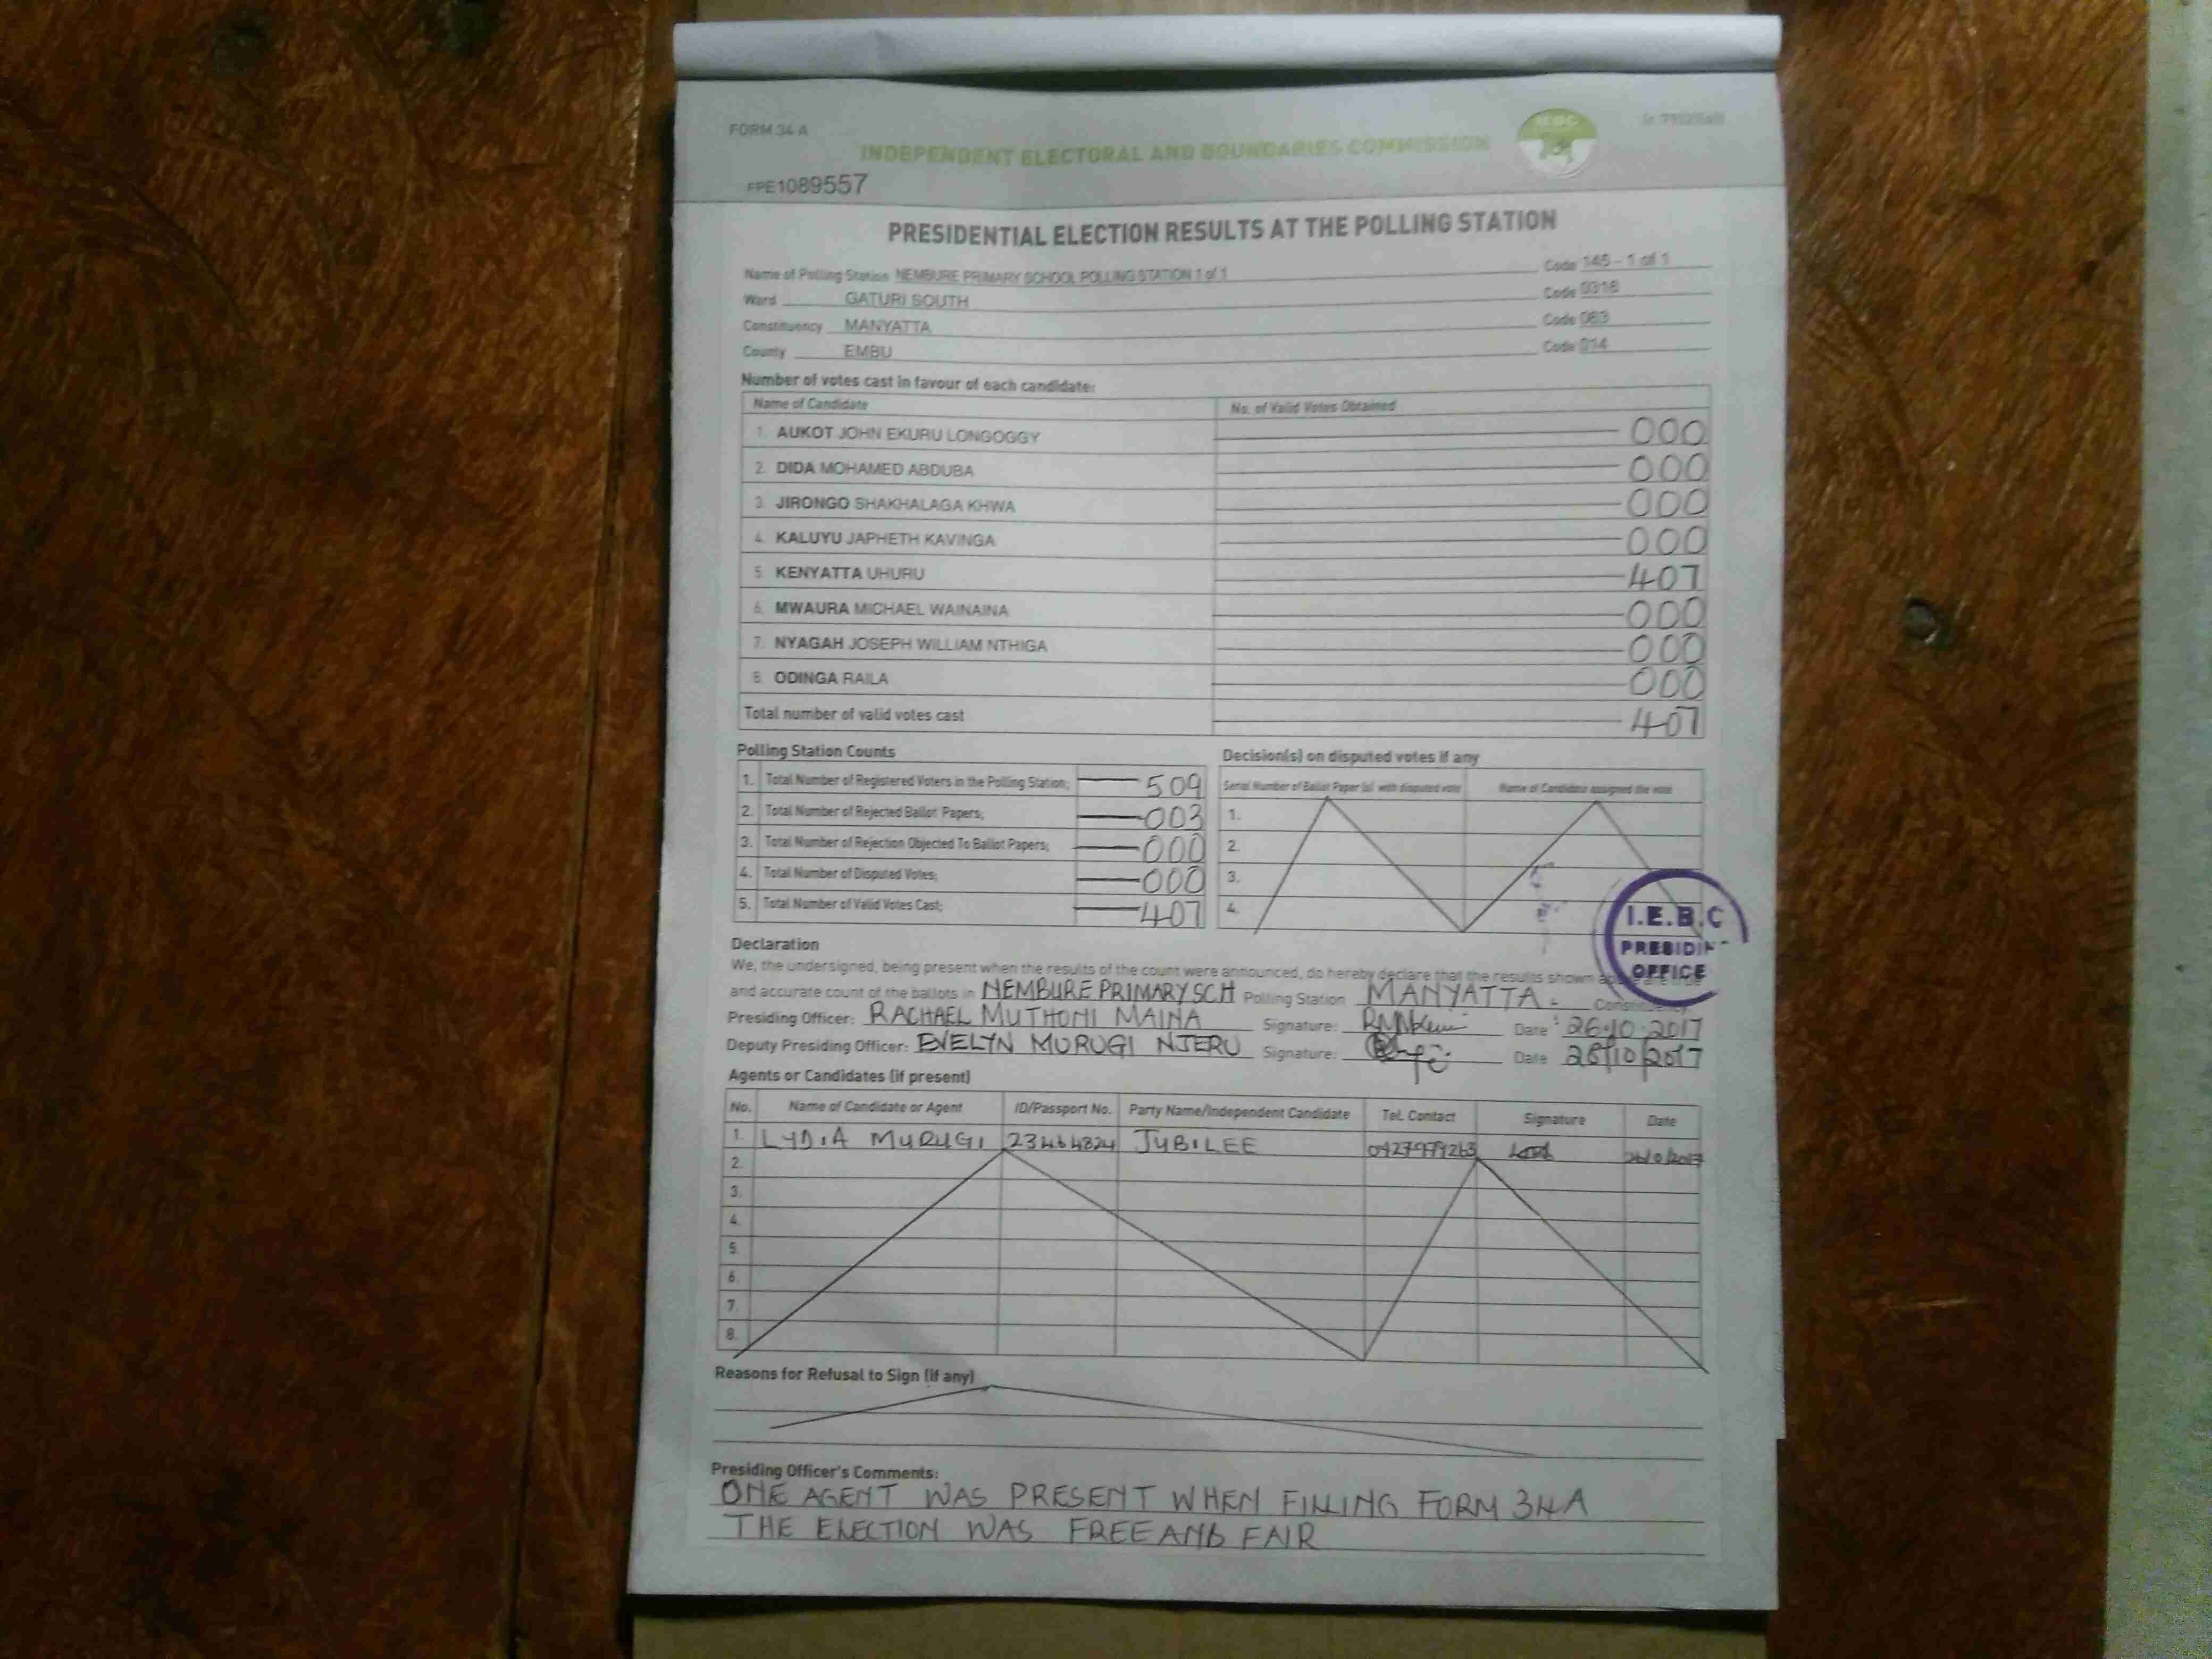 FORM 34 A
INDEPENDENT ELECTORAL AND BOUNDARIES COMMISSION
FPE1089557
PRESIDENTIAL ELECTION RESULTS AT THE POLLING STATION
Name of Polling Station NEMBURE PRIMARY SCHOOL POLLING STATION 1 of 1 Code 145 - 1 of 1
Ward GATURI SOUTH Code 0316
Constituency MANYATTA Code 063
County EMBU Code 014
Number of votes cast in favour of each candidate:
Name of Candidate No. of Valid Votes Obtained
1. AUKOT JOHN EKURU LONGOGGY 000
2. DIDA MOHAMED ABDUBA 000
3. JIRONGO SHAKHALAGA KHWA 000
4. KALUYU JAPHETH KAVINGA 000
5. KENYATTA UHURU 407
6. MWAURA MICHAEL WAINAINA 000
7. NYAGAH JOSEPH WILLIAM NTHIGA 000
8. ODINGA RAILA 000
Total number of valid votes cast 407
Polling Station Counts
1. Total Number of Registered Voters in the Polling Station; 509
2. Total Number of Rejected Ballot Papers; 003
3. Total Number of Rejection Objected To Ballot Papers; 000
4. Total Number of Disputed Votes; 000
5. Total Number of Valid Votes Cast; 407
Decision(s) on disputed votes if any
Serial Number of Ballot Paper (s) with disputed vote Name of Candidate assigned the vote
1.
2.
3.
4.
I.E.B.C
PRESIDIN
OFFICE
Declaration
We, the undersigned, being present when the results of the count were announced, do hereby declare that the results shown above are true
and accurate count of the ballots in NEMBURE PRIMARY SCH Polling Station MANYATTA Constituency.
Presiding Officer: RACHAEL MUTHONI MAINA Signature: Date 26.10.2017
Deputy Presiding Officer: EVELYN MURUGI NJERU Signature: Date 26/10/2017
Agents or Candidates (if present)
No. Name of Candidate or Agent ID/Passport No. Party Name/Independent Candidate Tel. Contact Signature Date
1. LYDIA MURUGI 23464824 JUBILEE
2.
3.
4.
5.
6.
7.
8.
Reasons for Refusal to Sign (if any)
Presiding Officer's Comments:
ONE AGENT WAS PRESENT WHEN FILLING FORM 34A
THE ELECTION WAS FREE AND FAIR